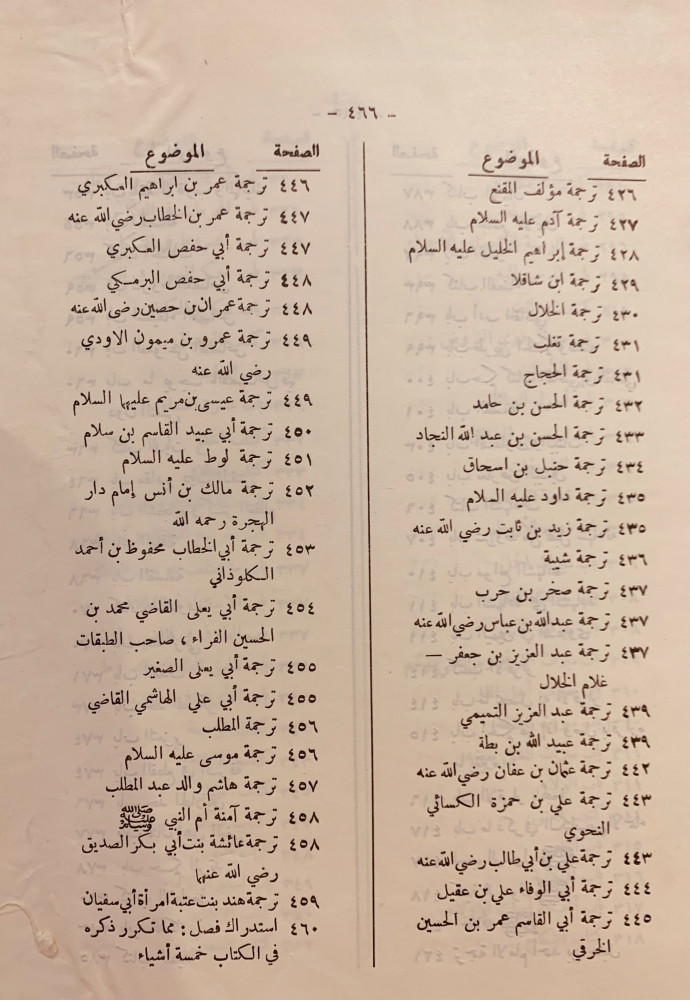 - ٤٦٦ -
الصفحة الموضوع
٤٢٦ ترجمة مؤلف المقنع
٤٢٧ ترجمة آدم عليه السلام
٤٢٨ ترجمة إبراهيم الخليل عليه السلام
٤٢٩ ترجمة ابن شاقلا
٤٣٠ ترجمة الخلال
٤٣١ ترجمة ثعلب
٤٣١ ترجمة الحجاج
٤٣٢ ترجمة الحسن بن حامد
٤٣٣ ترجمة الحسن بن عبد الله النجاد
٤٣٤ ترجمة حنبل بن اسحاق
٤٣٥ ترجمة داود عليه السلام
٤٣٥ ترجمة زيد بن ثابت رضي الله عنه
٤٣٦ ترجمة شيبة
٤٣٧ ترجمة صخر بن حرب
٤٣٧ ترجمة عبدالله بن عباس رضي الله عنه
٤٣٧ ترجمة عبد العزيز بن جعفر —
غلام الخلال
٤٣٩ ترجمة عبد العزيز التميمي
٤٣٩ ترجمة عبيد الله بن بطة
٤٤٢ ترجمة عثمان بن عفان رضي الله عنه
٤٤٣ ترجمة علي بن حمزة الكسائي
النحوي
٤٤٣ ترجمة علي بن أبي طالب رضي الله عنه
٤٤٤ ترجمة أبي الوفاء علي بن عقيل
٤٤٥ ترجمة أبي القاسم عمر بن الحسين
الخرقي
الصفحة الموضوع
٤٤٦ ترجمة عمر بن ابراهيم العكبري
٤٤٧ ترجمة عمر بن الخطاب رضي الله عنه
٤٤٧ ترجمة أبي حفص العكبري
٤٤٨ ترجمة أبي حفص البرمكي
٤٤٨ ترجمة عمران بن حصين رضي الله عنه
٤٤٩ ترجمة عمرو بن ميمون الاودي
رضي الله عنه
٤٤٩ ترجمة عيسى بن مريم عليهما السلام
٤٥٠ ترجمة أبي عبيد القاسم بن سلام
٤٥١ ترجمة لوط عليه السلام
٤٥٢ ترجمة مالك بن أنس إمام دار
الهجرة رحمه الله
٤٥٣ ترجمة أبي الخطاب محفوظ بن أحمد
الكلوذاني
٤٥٤ ترجمة أبي يعلى القاضي محمد بن
الحسين الفراء ، صاحب الطبقات
٤٥٥ ترجمة أبي يعلى الصغير
٤٥٥ ترجمة أبي علي الهاشمي القاضي
٤٥٦ ترجمة المطلب
٤٥٦ ترجمة موسى عليه السلام
٤٥٧ ترجمة هاشم والد عبد المطلب
٤٥٨ ترجمة آمنة أم النبي ﷺ
٤٥٨ ترجمة عائشة بنت أبي بكر الصديق
رضي الله عنها
٤٥٩ ترجمة هند بنت عتبة امرأة أبي سفيان
٤٦٠ استدراك فصل : مما تكرر ذكره
في الكتاب خمسة أشياء